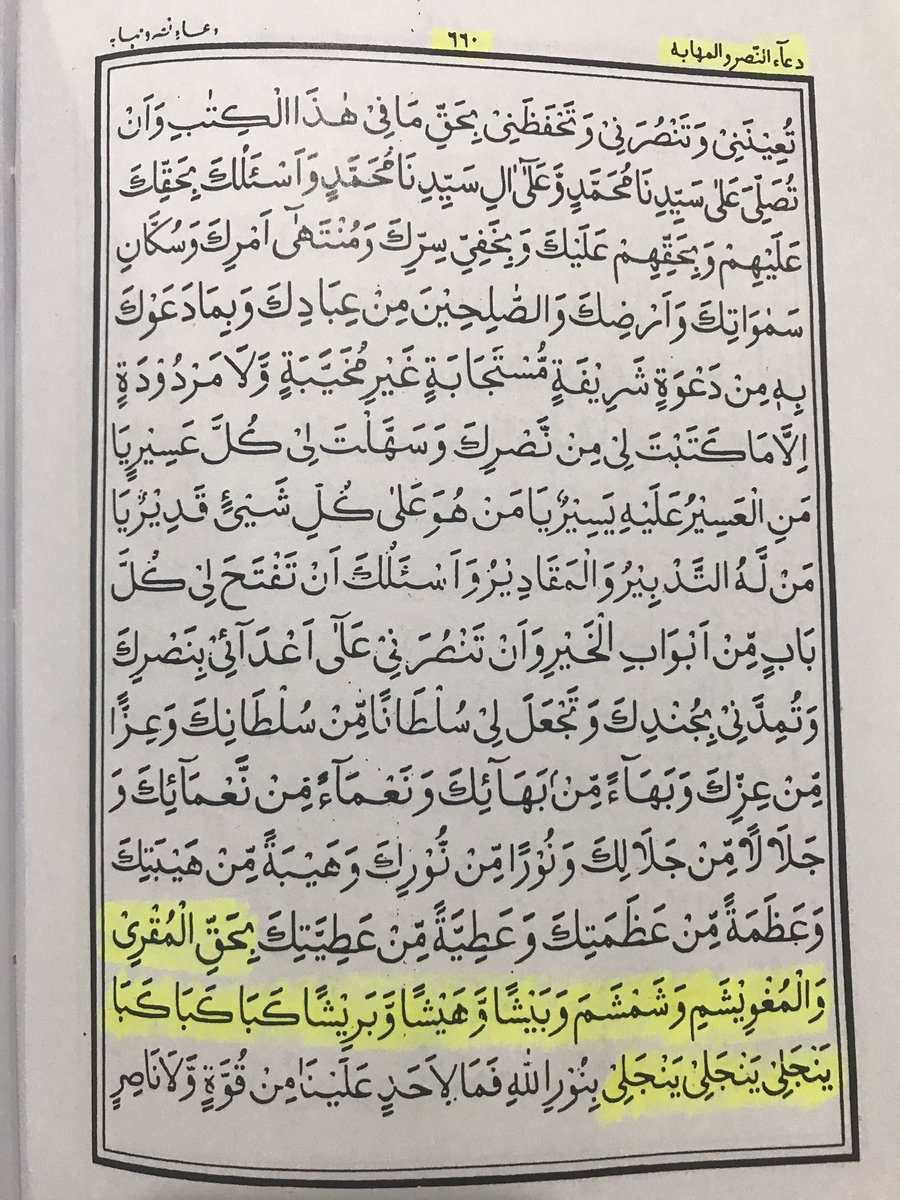 دعآء النصر والمهابة
٦٦٠
تُعِيْنَنِيْ وَتَنْصُرَنِيْ وَتَحْفَظَنِيْ بِحَقِّ مَا فِيْ هٰذَا الْكِتٰبِ وَاَنْ
تُصَلِّيَ عَلٰى سَيِّدِنَا مُحَمَّدٍ وَّعَلٰٓى اٰلِ سَيِّدِنَا مُحَمَّدٍ وَاَسْئَلُكَ بِحَقِّكَ
عَلَيْهِمْ وَبِحَقِّهِمْ عَلَيْكَ وَبِخَفِيِّ سِرِّكَ وَمُنْتَهٰٓى اَمْرِكَ وَسُكَّانِ
سَمٰوَاتِكَ وَاَرْضِكَ وَالصّٰلِحِيْنَ مِنْ عِبَادِكَ وَبِمَا دَعَوْكَ
بِهٖ مِنْ دَعْوَةٍ شَرِيْفَةٍ مُّسْتَجَابَةٍ غَيْرِ مُخَيَّبَةٍ وَّلَا مَرْدُوْدَةٍ
اِلَّا مَا كَتَبْتَ لِيْ مِنْ نَّصْرِكَ وَسَهَّلْتَ لِيْ كُلَّ عَسِيْرٍ يَا
مَنِ الْعَسِيْرُ عَلَيْهِ يَسِيْرٌ يَا مَنْ هُوَ عَلٰى كُلِّ شَيْئٍ قَدِيْرٌ يَا
مَنْ لَّهُ التَّدْبِيْرُ وَالْمَقَادِيْرُ وَاَسْئَلُكَ اَنْ تَفْتَحَ لِيْ كُلَّ
بَابٍ مِّنْ اَبْوَابِ الْخَيْرِ وَاَنْ تَنْصُرَنِيْ عَلٰٓى اَعْدَآئِيْ بِنَصْرِكَ
وَتُمِدَّنِيْ بِجُنْدِكَ وَتَجْعَلَ لِيْ سُلْطَانًا مِّنْ سُلْطَانِكَ وَعِزًّا
مِّنْ عِزِّكَ وَبَهَآءً مِّنْۢ بَهَآئِكَ وَنَعْمَآءً مِنْ نَّعْمَآئِكَ وَ
جَلَالًا مِّنْ جَلَالِكَ وَنُوْرًا مِّنْ نُّوْرِكَ وَهَيْبَةً مِّنْ هَيْبَتِكَ
وَعَظَمَةً مِّنْ عَظَمَتِكَ وَعَطِيَّةً مِّنْ عَطِيَّتِكَ بِحَقِّ الْمُقْرِيْ
وَالْمُغْوِيْشَمِ وَشَمْشَمَ وَبَيْشًا وَّهَيْشًا وَّبَرِيْشًا كَبَا كَبَا كَبَا
يَنْجَلِيْ يَنْجَلِيْ يَنْجَلِيْ بِنُوْرِ اللّٰهِ فَمَا لِاَحَدٍ عَلَيْنَا مِنْ قُوَّةٍ وَّلَا نَاصِرٍ